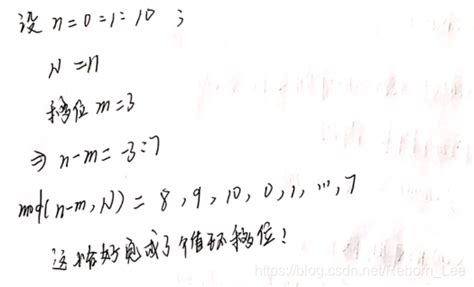 设 n = 0 = 1 : 10 ;
N = 11
移位 m = 3
⇒ n-m = -3:7
mod(n-m, N) = 8, 9, 10, 0, 1, ..., 7
这恰好完成了个循环移位!
https://blog.csdn.net/Reborn_Lee